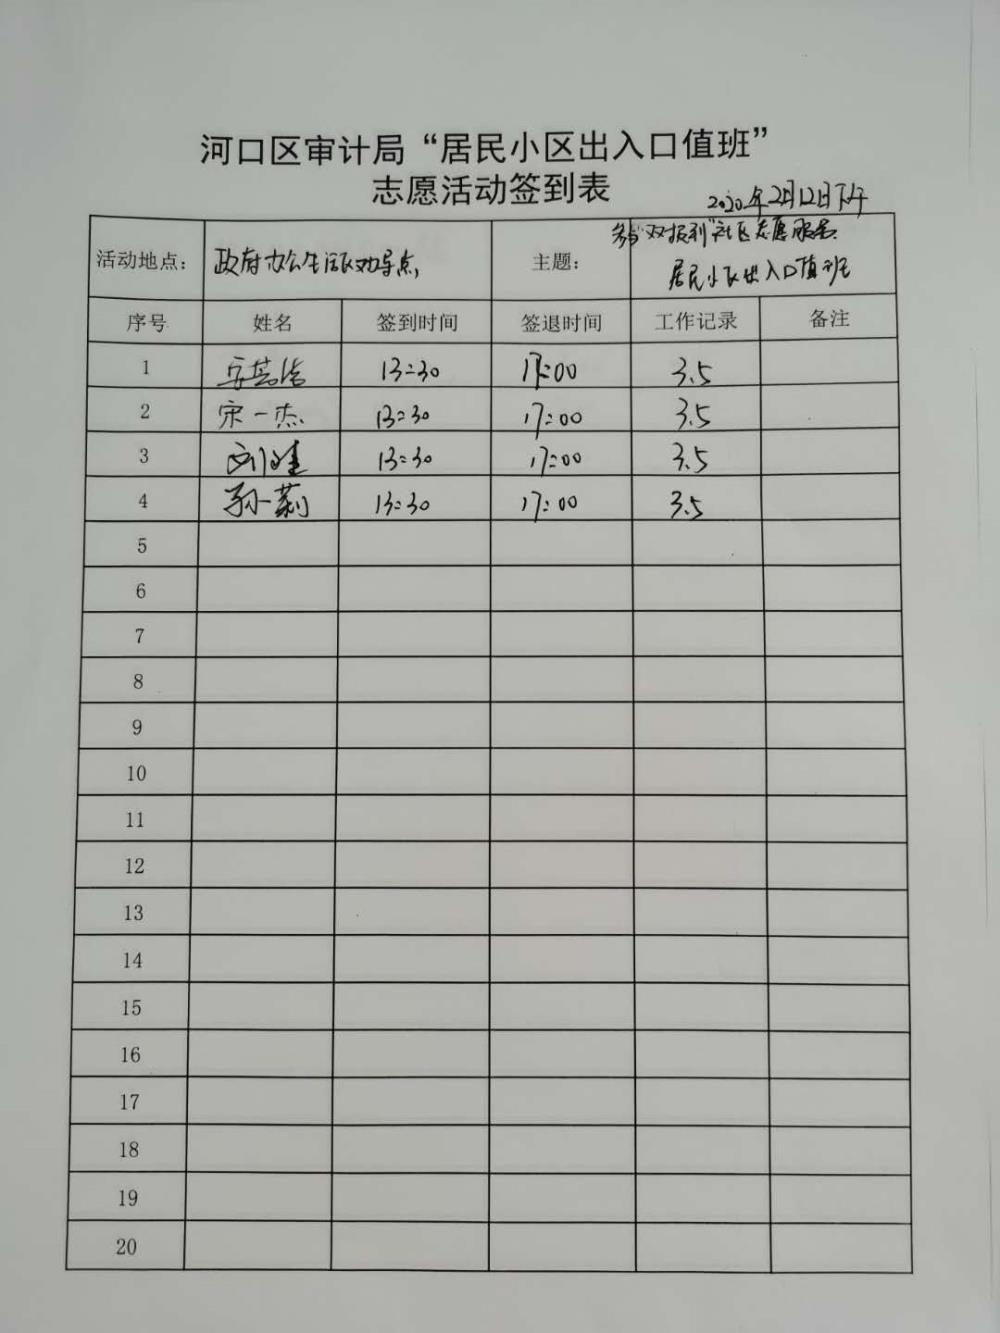 河口区审计局“居民小区出入口值班”
志愿活动签到表
2020年2月12日下午
活动地点： 政府办公生活区劝导点 主题： “双报到”社区志愿服务
居民小区出入口值班
序号 姓名 签到时间 签退时间 工作记录 备注
1 13:30 17:00 3.5
2 宋一杰 13:30 17:00 3.5
3 13:30 17:00 3.5
4 孙莉 13:30 17:00 3.5
5
6
7
8
9
10
11
12
13
14
15
16
17
18
19
20